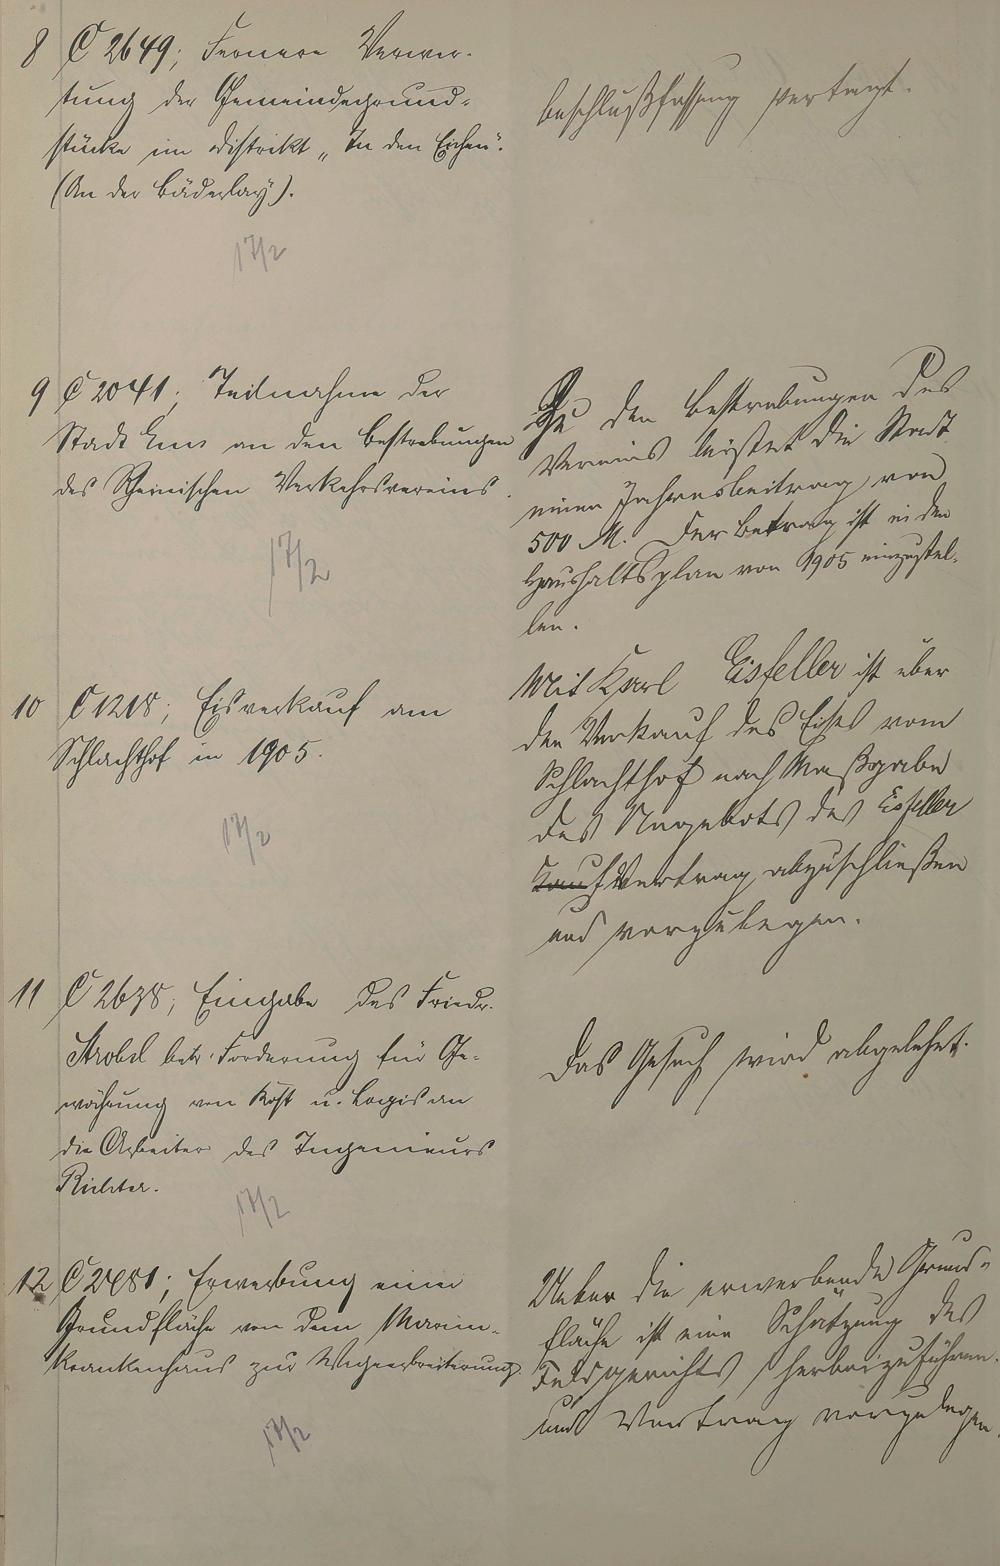 8 C 2649; Fernere Verwer-
tung der Gemeindegrund-
stücke im Distrikt „In den Eichen".
(An der Bäderlay).
17/2
Beschlußfassung vertagt.
9 C 2041; Teilnahme der
Stadt Ems an den Bestrebungen
des Rheinischen Verkehrsvereins.
17/2
Zu den Bestrebungen des
Vereins leistet die Stadt
einen Jahresbeitrag von
500 M. Der Betrag ist in den
Haushaltsplan von 1905 einzustel-
len.
10 C 1218; Eisverkauf am
Schlachthof in 1905.
17/2
Mit Karl Eisfeller ist über
den Verkauf des Eises vom
Schlachthof nach Maßgabe
des Angebots des Eisfeller
Kauf Vertrag abzuschließen
und vorzulegen.
11 C 2638; Eingabe des Friedr.
Strobel betr. Forderung für Ge-
währung von Kost u. Logis an
die Arbeiter des Ingenieurs
Richter.
17/2
Das Gesuch wird abgelehnt.
12 C 2481; Erwerbung einer
Grundfläche von dem Marien-
krankenhaus zur Wegeverbreiterung.
17/2
Ueber die erwerbende Grund-
fläche ist eine Schätzung des
Feldgerichts herbeizuführen
und Vertrag vorzulegen.